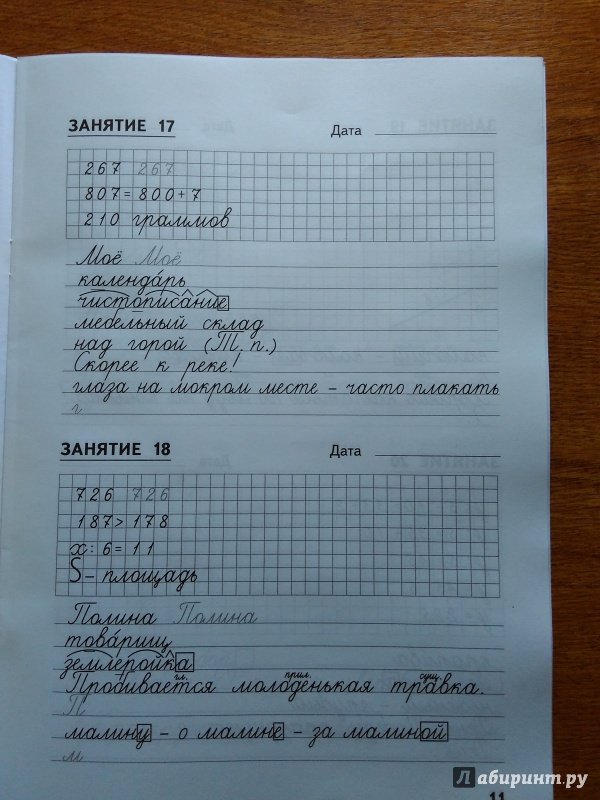 ЗАНЯТИЕ 17 Дата
267 267
807=800+7
210 граммов
Моё Моё
календарь
чистописание
мебельный склад
над горой (Т.п.)
Скорее к реке!
глаза на мокром месте – часто плакать
г
ЗАНЯТИЕ 18 Дата
726 726
187>178
х:6=11
S – площадь
Полина Полина
товарищ
землеройка
гл. прил. сущ.
Пробивается молоденькая травка.
П
малину – о малине – за малиной
м
Лабиринт.ру
11